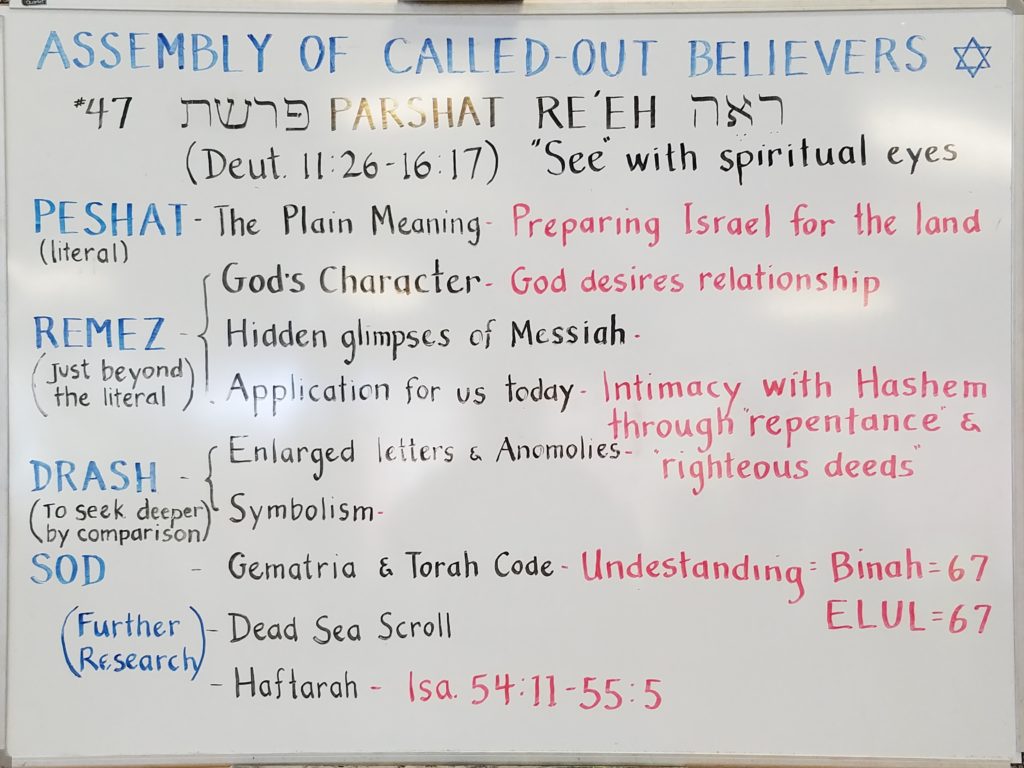 ASSEMBLY OF CALLED-OUT BELIEVERS
#47 פרשת PARSHAT RE'EH ראה
(Deut. 11:26-16:17) "See" with spiritual eyes
PESHAT - The Plain Meaning - Preparing Israel for the land
(literal)
God's Character - God desires relationship
REMEZ - Hidden glimpses of Messiah -
(Just beyond the literal)
Application for us today - Intimacy with Hashem
through "repentance" &
Enlarged letters & Anomolies - "righteous deeds"
DRASH -
(To seek deeper by comparison)
Symbolism -
SOD - Gematria & Torah Code - Undestanding = Binah = 67
ELUL = 67
(Further Research)
- Dead Sea Scroll
- Haftarah - Isa. 54:11-55:5